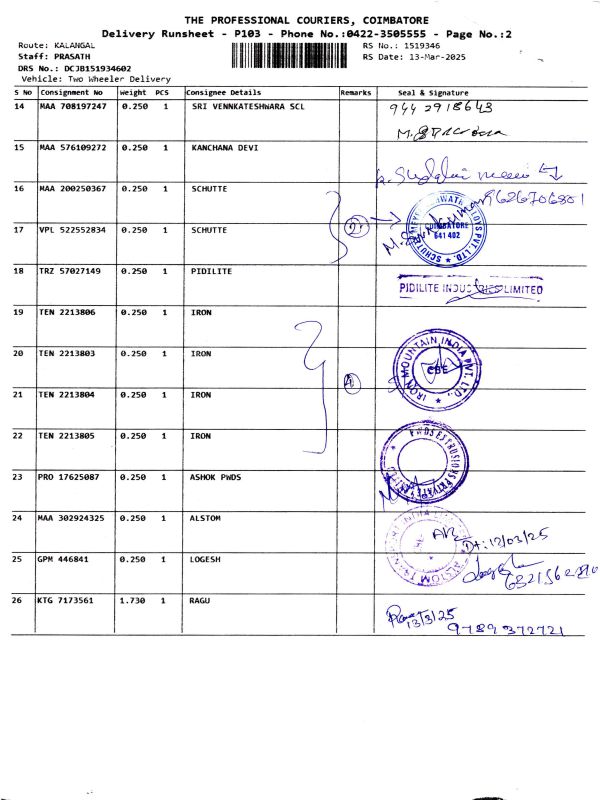 THE PROFESSIONAL COURIERS, COIMBATORE
Delivery Runsheet - P103 - Phone No.:0422-3505555 - Page No.:2
Route: KALANGAL RS No.: 1519346
Staff: PRASATH RS Date: 13-Mar-2025
DRS No.: DCJB151934602
Vehicle: Two Wheeler Delivery
S No Consignment No Weight PCS Consignee Details Remarks Seal & Signature
14 MAA 708197247 0.250 1 SRI VENNKATESHWARA SCL 9442918643
15 MAA 576109272 0.250 1 KANCHANA DEVI
16 MAA 200250367 0.250 1 SCHUTTE 9626706801
17 VPL 522552834 0.250 1 SCHUTTE 2 COIMBATORE 641 402
18 TRZ 57027149 0.250 1 PIDILITE PIDILITE INDUSTRIES LIMITED
19 TEN 2213806 0.250 1 IRON
20 TEN 2213803 0.250 1 IRON IRON MOUNTAIN INDIA PVT. LTD., CBE
21 TEN 2213804 0.250 1 IRON 4
22 TEN 2213805 0.250 1 IRON
23 PRO 17625087 0.250 1 ASHOK PWDS
24 MAA 302924325 0.250 1 ALSTOM Dt: 12/03/25
25 GPM 446841 0.250 1 LOGESH
26 KTG 7173561 1.730 1 RAGU 13/3/25
9789372721